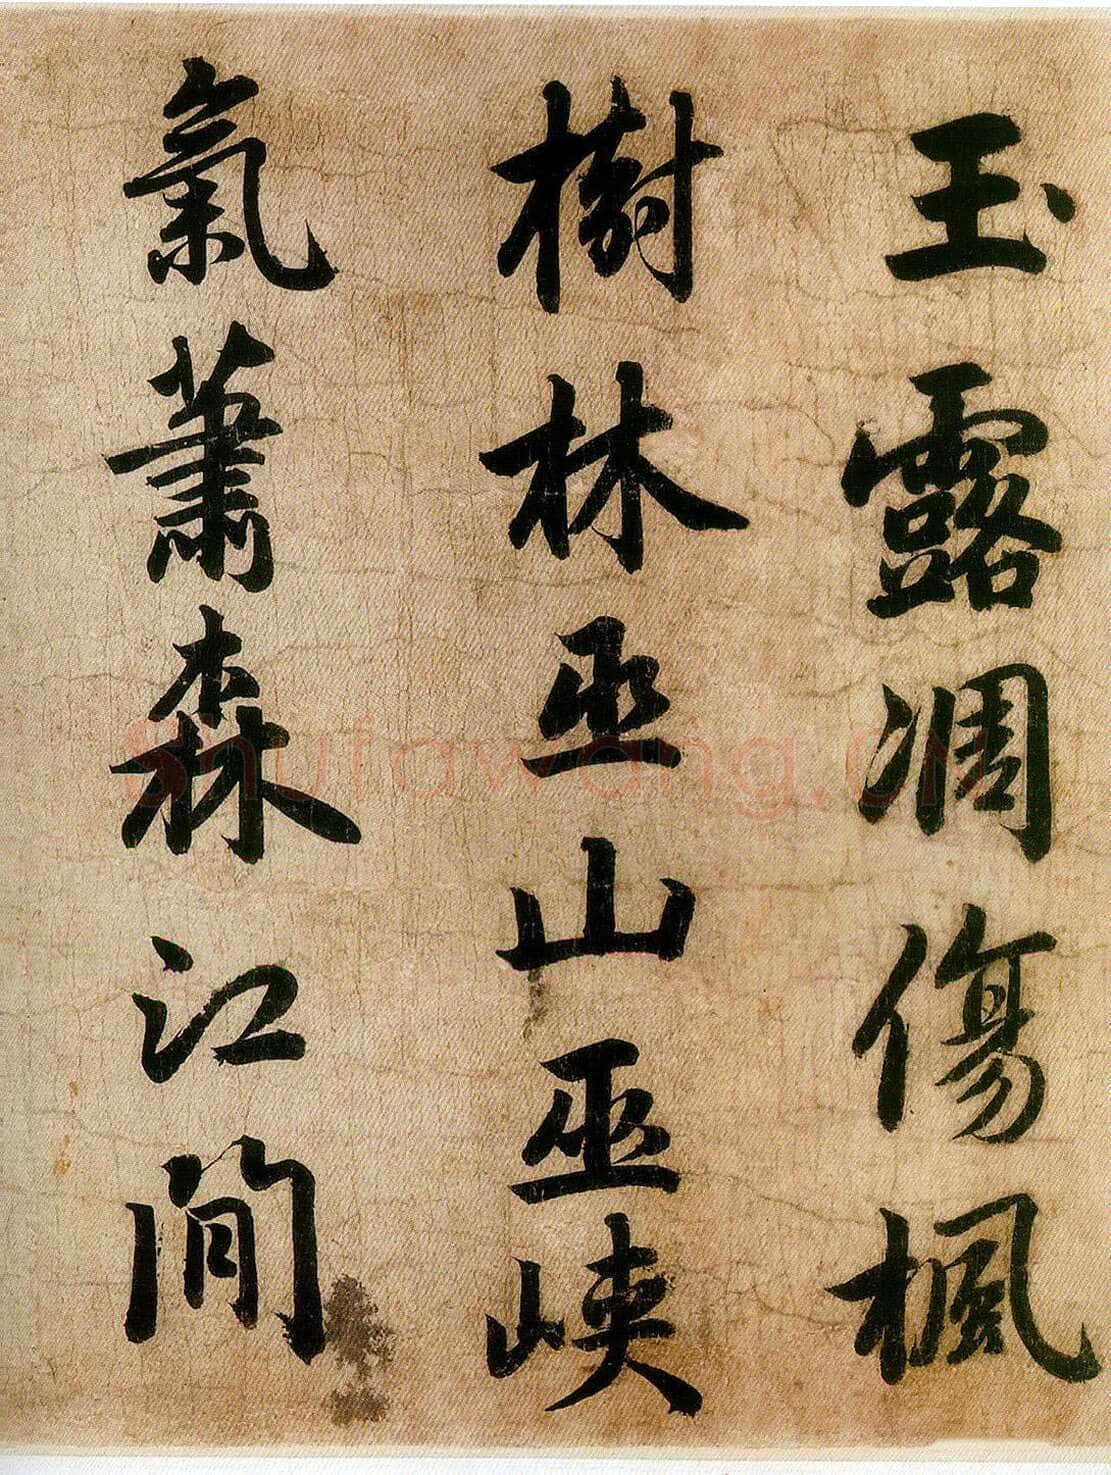 玉露凋傷楓
樹林巫山巫峽
氣蕭森江間
Shufawang.cn